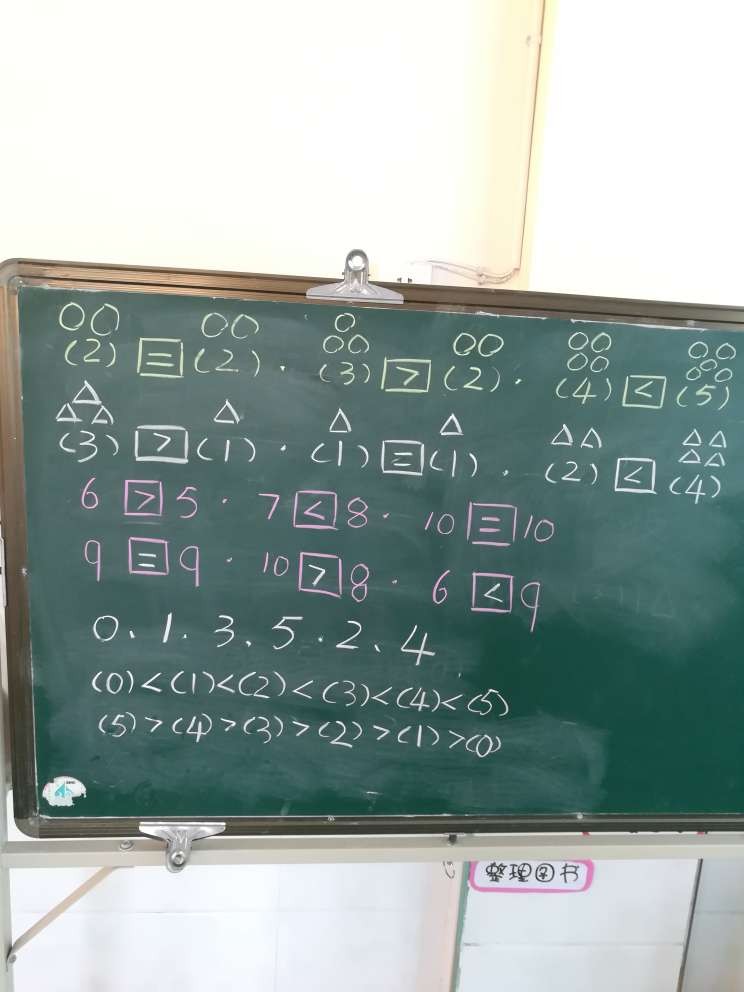 (2) = (2) . (3) > (2) . (4) < (5)
(3) > (1) . (1) = (1) . (2) < (4)
6 > 5 . 7 < 8 . 10 = 10
9 = 9 . 10 > 8 . 6 < 9
0、1、3、5、2、4
(0)<(1)<(2)<(3)<(4)<(5)
(5)>(4)>(3)>(2)>(1)>(0)
整理图书